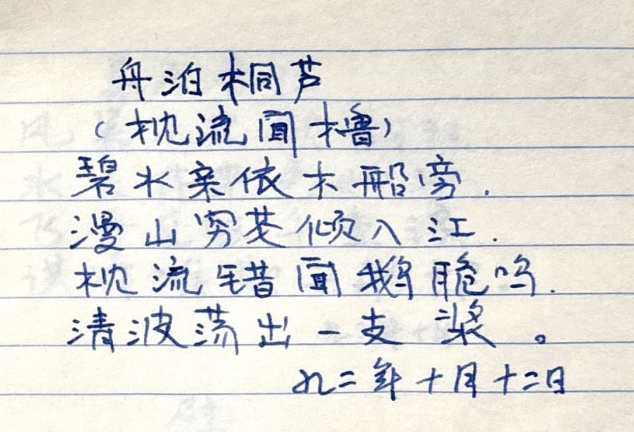 舟泊桐芦
（枕流闻橹）
碧水亲依木船旁.
漫山穷艺倾入江.
枕流错闻鹅脆鸣.
清波荡出一支桨。
九二年十月十二日